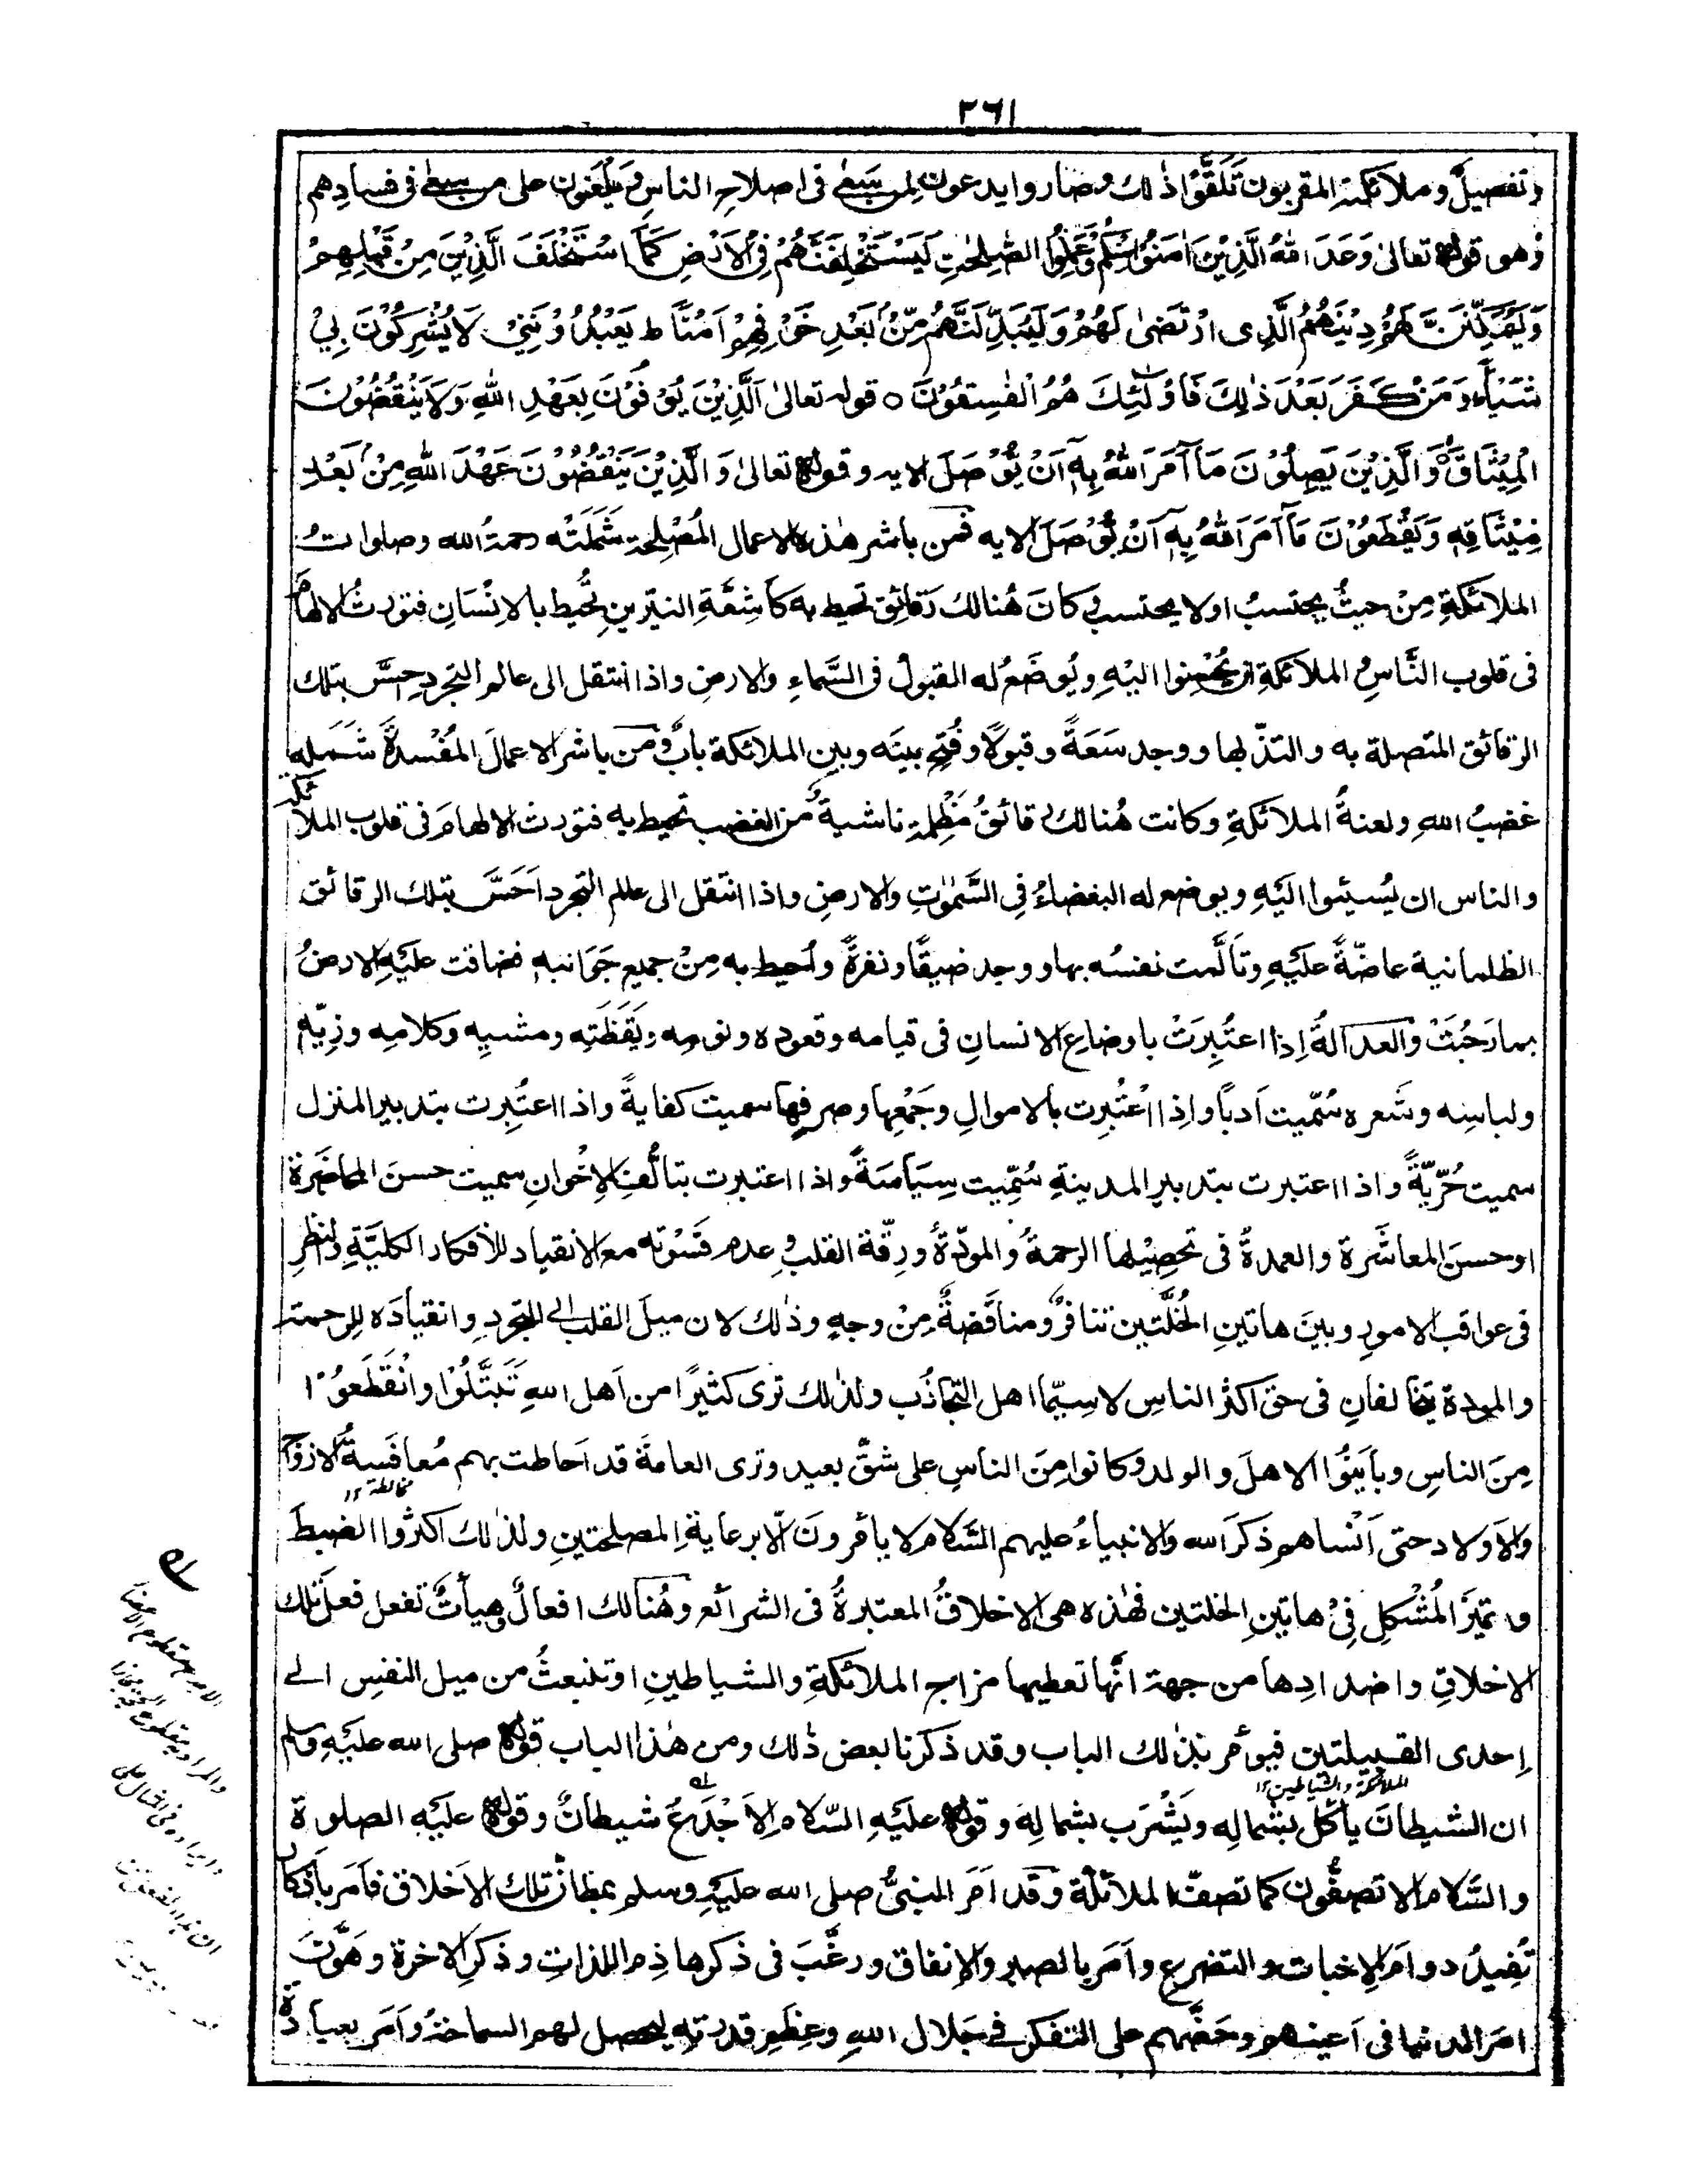 ٢٦١
وتفصيلٌ وملائكته المقربون تَلَقَّوْا ذٰلك وصاروا يدعون لِمن سَعٰى فى اصلاحِ الناسِ ويَلْعَنون على من سعٰى فى فسادِهم
وُهو قوله تعالىٰ وَعَدَ اللهُ الَّذِيْنَ اٰمَنُوْا مِنْكُمْ وَعَمِلُوا الصّٰلِحٰتِ لَيَسْتَخْلِفَنَّهُمْ فِى الْاَرْضِ كَمَا اسْتَخْلَفَ الَّذِيْنَ مِنْ قَبْلِهِمْ
وَلَيُمَكِّنَنَّ لَهُمْ دِيْنَهُمُ الَّذِى ارْتَضىٰ لَهُمْ وَلَيُبَدِّلَنَّهُمْ مِّنْۢ بَعْدِ خَوْفِهِمْ اَمْنًا ط يَعْبُدُوْنَنِيْ لَا يُشْرِكُوْنَ بِيْ
شَيْئًا وَمَنْ كَفَرَ بَعْدَ ذٰلِكَ فَاُولٰٓئِكَ هُمُ الْفٰسِقُوْنَ ○ قوله تعالىٰ اَلَّذِيْنَ يُوْفُوْنَ بِعَهْدِ اللهِ وَلَا يَنْقُضُوْنَ
الْمِيْثَاقَ وَالَّذِيْنَ يَصِلُوْنَ مَآ اَمَرَ اللهُ بِهٖٓ اَنْ يُّوْصَلَ الايه وقوله تعالىٰ وَالَّذِيْنَ يَنْقُضُوْنَ عَهْدَ اللهِ مِنْۢ بَعْدِ
مِيْثَاقِهٖ وَيَقْطَعُوْنَ مَآ اَمَرَ اللهُ بِهٖٓ اَنْ يُّوْصَلَ الايه فمن باشر هٰذه الاعمال المُصْلِحة شَمَلَتْه رحمةُ الله وصلواتُ
الملائكةِ مِنْ حيثُ يحتسبُ او لا يحتسب وكانَ هُنالك رَقائِق تحيط به كأَشِعَّةِ النيّرينِ تُحيط بالانْسَانِ فتورثُ الالهامَ
فى قلوب النَّاسِ والملائكةِ ان يُحْسِنوا اليْهِ ويُوضَعُ له القبولُ فى السَّماءِ والارضِ واذا انتقل الى عالم التجردِ حِسَّ بتلك
الرقائق المتصلة به والتذّ بها ووجد سَعَةً وقبولًا وفُتِح بينَه وبين الملائكة بابٌ ومن باشر الاعمالَ المُفْسدةَ شَمَله
غضبُ اللهِ ولعنةُ الملائكةِ وكانت هُنالك رقائقُ مُظْلِمة ناشيةٌ من الغضب تحيط به فتورث الالهامَ فى قلوب الملائكة
والناس ان يُسيئوا الَيْهِ ويوضع له البغضاءُ فِى السَّمٰوٰتِ والارضِ واذا انتقل الى عالم التجرد اَحَسَّ بتلك الرقائق
الظلمانية عاضّةً عَلَيْهِ وتَأَلَّمت نفسُه بها ووجد ضيقًا ونفرةً واُحيط به مِنْ جميع جَوَانبه فضاقت عَلَيْهِ الارضُ
بما رَحُبَتْ والعدالةُ اِذا اعتُبِرَتْ باوضاعِ الانسانِ فى قيامه وقعوده ونومِه ويَقَظَتِه ومشيِه وكلامِه وزِيِّه
ولباسِه وشَعره سُمّيت اَدبًا واذا اعْتُبِرت بالاموالِ وجَمْعِها وصرفِها سميت كفايةً واذا اعتُبِرت بتدبير المنزل
سميت حُرّيّةً واذا اعتبرت بتدبيرِ المدينةِ سُمِّيت سِيَاسَةً واذا اعتبرت بتألُّفِ الاِخْوانِ سميت حسنَ المحاضَرة
او حسنَ المعاشَرة والعمدةُ فى تحصِيْلها الرحمةُ والمودّةُ ورِقّة القلبِ وعدم قَسْوته مع الانقياد للافكار الكليَّةِ والنظرِ
فى عواقب الامورِ وبينَ هاتينِ الخُلَّتين تنافرٌ ومناقَضةٌ مِنْ وجهٍ وذٰلك لان ميلَ القلب الى التجردِ وانقيادَه للرحمة
والمودة يتخالفانِ فى حق اكثر الناسِ لا سِيّما اهل التجاذُب ولذٰلك ترى كثيرًا من اَهل اللهِ تَبَتَّلُوْا وانْقَطَعوُا
مِنَ الناسِ وبأَيَنُوا الاهلَ والولدَ وكانوا مِنَ الناسِ على شقّ بعيد وترى العامةَ قد اَحاطت بهم مُعافَسةُ الازوا
مخالطة ١٢
والاَولاد حتى اَنْساهم ذكرَ الله والانبياءُ عليهم السَّلام لا يأمرونَ الّا برعايةِ المصلحتينِ ولذٰلك اكثرُوا الضبطَ
وتميّزَ المُشْكِل فِىْ هاتينِ الخلتين فهٰذه هى الاخلاقُ المعتبرةُ فى الشرائع وهُنالك افعالٌ وهيأتٌ تفعل فعلَ تلك
الاخلاقِ واضدادِها من جهة انّها تعطيها مزاجِ الملائكةِ والشياطينِ او تنبعثُ من ميل النفسِ الى
اِحدى القبيلتين فيؤمر بذٰلك الباب وقد ذكرنا بعض ذٰلك ومن هٰذا الباب قوله صلى الله عليه وسلم
الملائكة والشياطين ١٢
ان الشيطانَ ياكُل بشمالِه ويَشْرَب بشمالِه وقوله عليهِ السّلام الاَجْدَعُ شيطانٌ وقوله عليه الصلوة
والسَّلام الا تصفُّون كما تصفّ الملائكة وقد اَمَر النبىُّ صلى الله عليه وسلم بمظانِّ تلك الاَخلاق فاَمَر بأذكار
تُفيدُ دوامَ الاِخبات والتضرع واَمَر بالصبر والاِنفاق ورغَّبَ فى ذكرِ هاذِم اللذاتِ وذكرِ الاخرة وهَوَّنَ
امرَ الدنيا فى اَعينهم وحَضَّهم على التفكر فى جَلال اللهِ وعِظَمِ قدرته ليحصل لهم السماحةُ واَمَر بعيادة